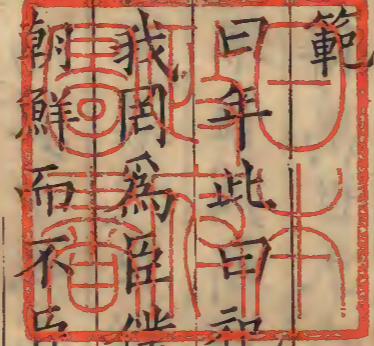 範
曰年此曰祀
我罔爲臣僕
朝鮮而不臣